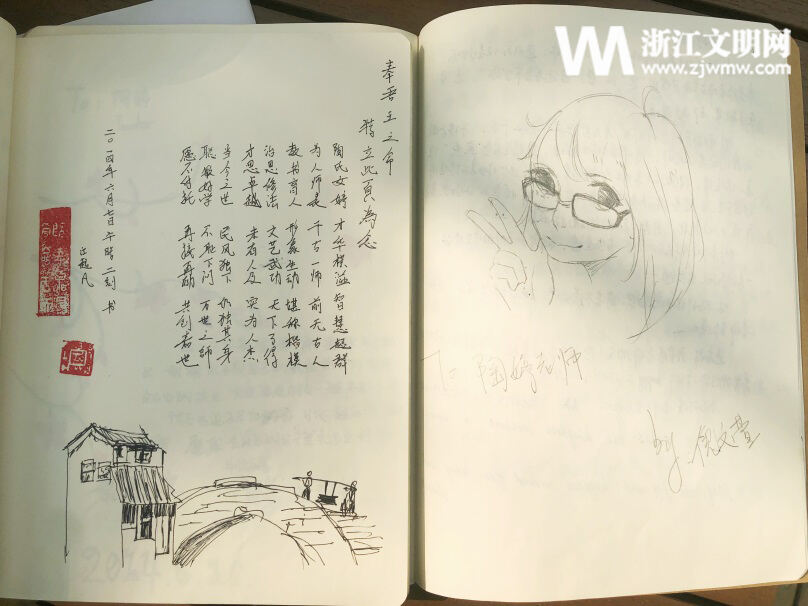 奉吾王之命
特立此页为念
陶氏文婷 才华横溢 智慧超群
为人师表 千古一师 前无古人
教书育人 形象生动 堪称楷模
治思修法 文艺武功 天下了得
才思卓越 未有人及 实为人杰
当今之世 民风独下 如独其身
聪敏好学 不耻下问 万世之师
愿不付托 再接再励 共创嘉世
二〇一四年六月七日午时二刻 书
浙江文明网
www.zjwmw.com
To 陶婷老师
by